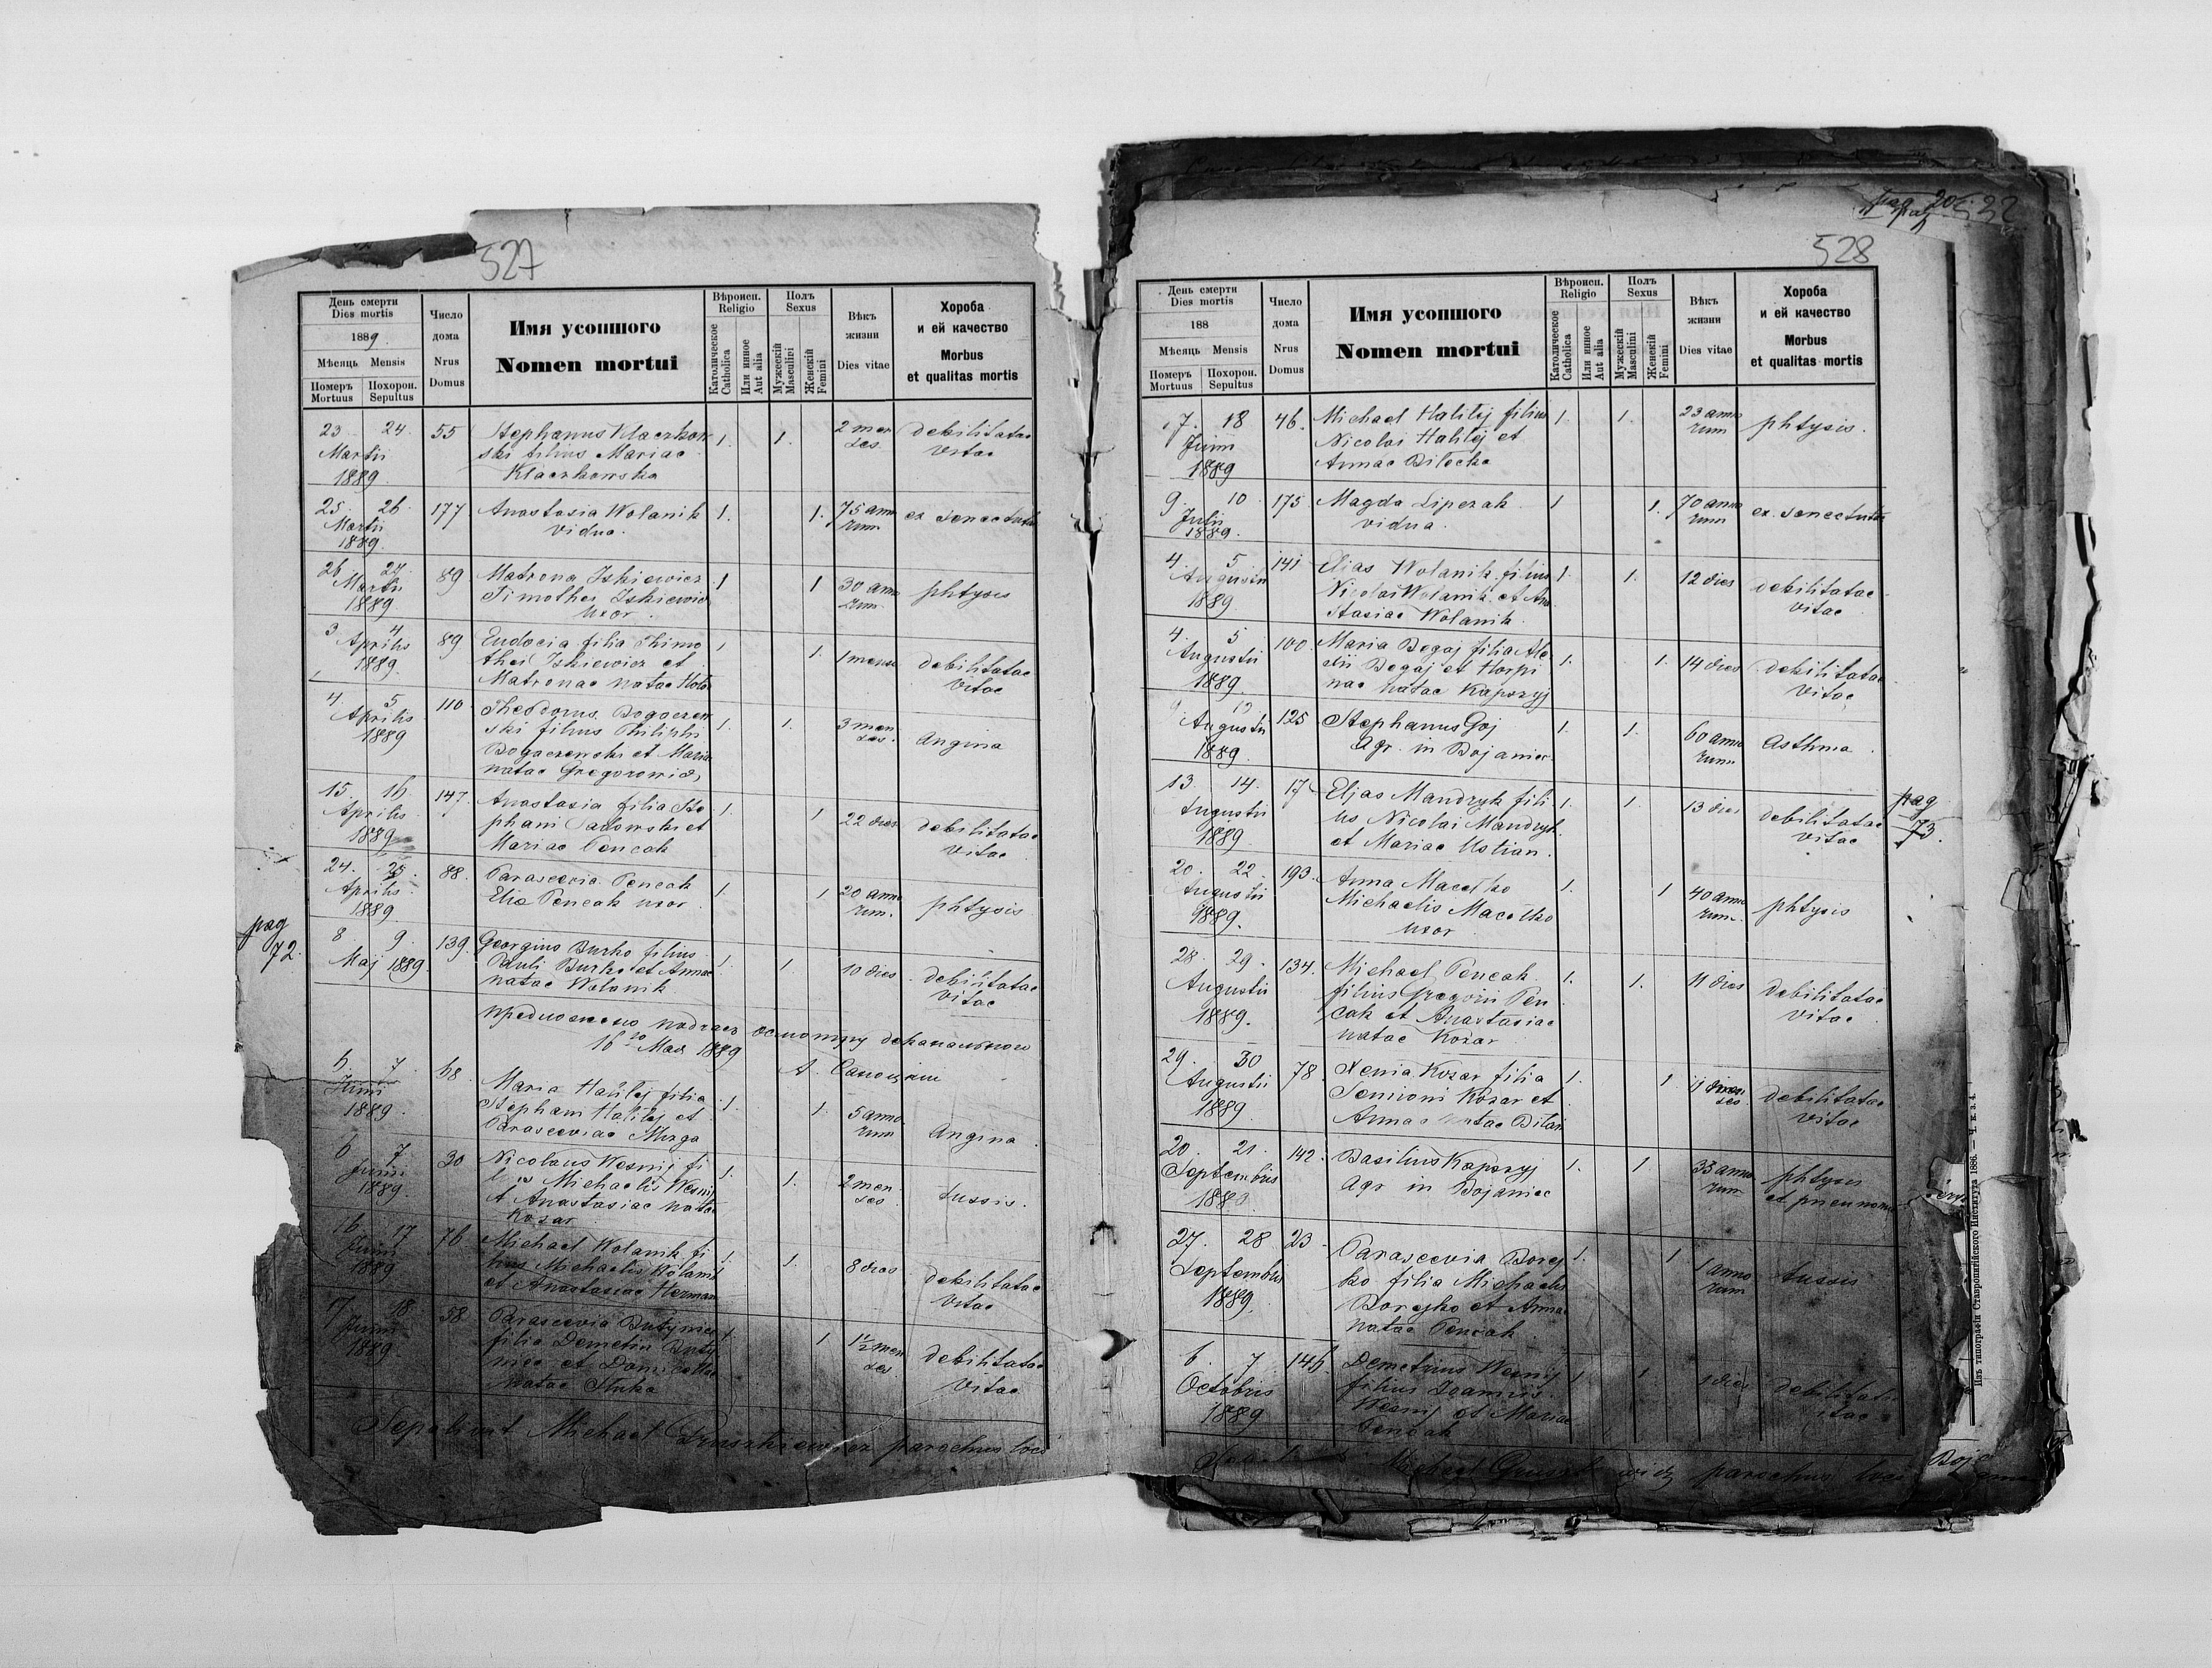 527
День смерти
Dies mortis
1889.
Мѣсяць Mensis
Померъ Mortuus
Похорон. Sepultus
Число дома
Nrus Domus
Имя усопшого
Nomen mortui
Вѣроисп.
Religio
Католическое
Catholica
Или инное
Aut alia
Полъ
Sexus
Мужескій
Masculini
Женскій
Femini
Вѣкъ жизни
Dies vitae
Хороба
и ей качество
Morbus
et qualitas mortis
23. 24. 55 Stephanus Klaczkow 1. 1. 2 men debilitatae
Martii ski filius Mariae ses vitae
1889 Klaczkowska
25. 26. 177 Anastasia Wolanik 1. 1. 75 anno ex senectute
Martii vidua. rum
1889.
26. 27. 89 Matrona Iskiewicz 1 1 30 anno phtysis
Martii Timothei Iskiewicz rum
1889 uxor.
3 4 89 Eudocia filia Thimo 1 1. 1 mense debilitatae
Aprilis thei Iskiewicz et vitae
1889. Matronae natae
4. 5 110 Theodorus Bogaczew 1. 1. 3 men angina
Aprilis ski filius Philiphi ses.
1889 Bogaczewski et Maria
natae Gregorowicz
15. 16 147. Anastasia filia Ste 1. 1 22 dies debilitatae
Aprilis phani Sadowski et vitae
1889 Mariae Pencak
24. 25. 88. Parascevia Pencak 1. 1 20 anno phtysis
Aprilis Eliae Pencak uxor. rum.
1889.
pag
72.
8. 9. 139. Georgius Burko filius 1. 1. 10 dies debilitatae
Maj 1889. Pauli Burko et Annae vitae
natae Wolanik
предложено подчас осмотру деканального
16го Мая 1889
6. 7. 68. Maria Halilej filia 1. 1. 5 anno angina
Junii Stephani Halilej et rum
1889. Parasceviae Murga
6 7 30 Nicolaus Wesnij fi 1. 1. 2 men tussis.
Junii lius Michaelis Wesnij ses
1889. et Anastasiae natae
Kozar
16 17 76 Michael Wolanik fi 1. 1. 8 dies debilitatae
Junii lius Michaelis Wolanik vitae
1889 et Anastasiae Herman
17 18. 58 Parascevia Butyniec 1 1 1½ men debilitatae
Junii filia Demetrii Buty ses. vitae
1889. niec et
natae
Sepelivit Michael Gruszkiewicz parochus loci
528
День смерти
Dies mortis
188
Мѣсяць Mensis
Померъ Mortuus
Похорон. Sepultus
Число дома
Nrus Domus
Имя усопшого
Nomen mortui
Вѣроисп.
Religio
Католическое
Catholica
Или инное
Aut alia
Полъ
Sexus
Мужескій
Masculini
Женскій
Femini
Вѣкъ жизни
Dies vitae
Хороба
и ей качество
Morbus
et qualitas mortis
17. 18 46. Michael Halilej filius 1. 1. 23 anno phtysis.
Junii Nicolai Halilej et rum
1889 Annae Bilecka
9. 10 175. Magda Lipczak 1 1. 70 anno ex senectute
Julii vidua. rum
1889.
4. 5 141 Elias Wolanik filius 1. 1. 12 dies debilitatae
Augusti Nicolai Wolanik et Ana vitae
1889. stasiae Wolanik
4. 5 100. Maria Begaj filia Ale 1. 1. 14 dies debilitatae
Augustii xii Begaj et Hospi vitae
1889. nae natae Kapszyj
125 Stephanus Goj 1. 1. 60 anno asthma.
Augustii agr. in Bojaniec rum
1889.
13. 14. 17 Eljas Mandryk fili 1. 1. 13 dies debilitatae
Augustii us Nicolai Mandryk vitae
1889. et Mariae Ustian.
pag
73.
20. 22. 193. Anna Macelko 1. 1 40 anno phtysis
Augustii Michaelis Macelko rum.
1889. uxor
28. 29. 134. Michael Pencak 1. 1. 11 dies debilitatae
Augustii filius Gregorii Pen vitae
1889. cak et Anastasiae
natae Kozar
29. 30 78. Xenia Kozar filia 1. 1 debilitatae
Augustii Semioni Kozar et vitae
1889. Annae natae
20. 21. 142. Basilius Kapszyj 1. 1. 33 anno phtysis
Septembris agr in Bojaniec rum et pneumonia
1889.
27. 28 23 Parascevia Borej 1. 1 1 anno tussis
Septembris ko filia Michaelis rum
1889. Borejko et Annae
natae Pencak.
6. 7. 146 Demetrius Wesnij 1 1 1 dies debilitatae
Octobris filius Joannis vitae
1889 Wesnij et Mariae
Pencak
Michael Gruszkiewicz parochus loci
Изъ типографіи Ставропигійского Института 1886. — Ч. к. а. 4.